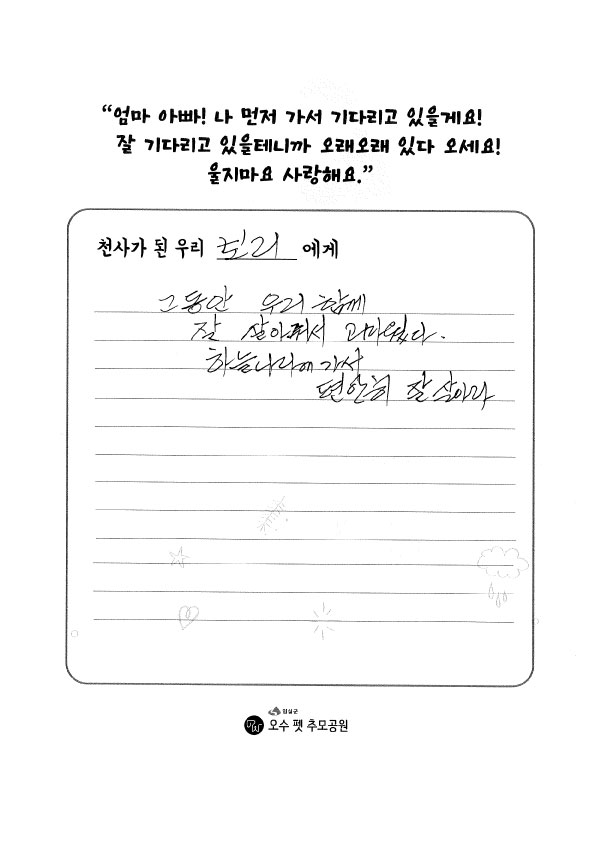 “엄마 아빠! 나 먼저 가서 기다리고 있을게요!
잘 기다리고 있을테니까 오래오래 있다 오세요!
울지마요 사랑해요.”
천사가 된 우리 보리 에게
그동안 우리 함께
잘 살아줘서 고마웠다.
하늘나라에 가서
편안히 잘 살아라
임실군
오수 펫 추모공원